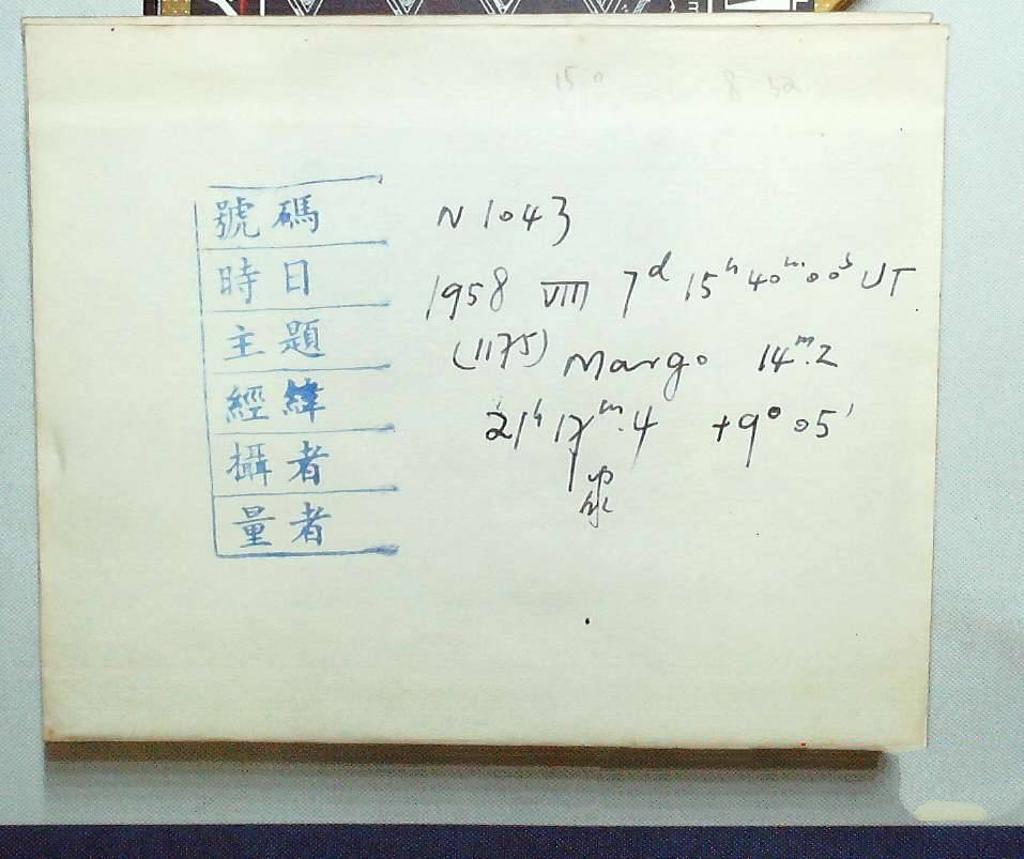 號碼 N 1043
時日 1958 VIII 7ᵈ 15ʰ 40ᵐ 00ˢ UT
主題 (1175) Margo 14ᵐ.2
經緯 21ʰ 17ᵐ.4 +9° 05'
攝者
量者